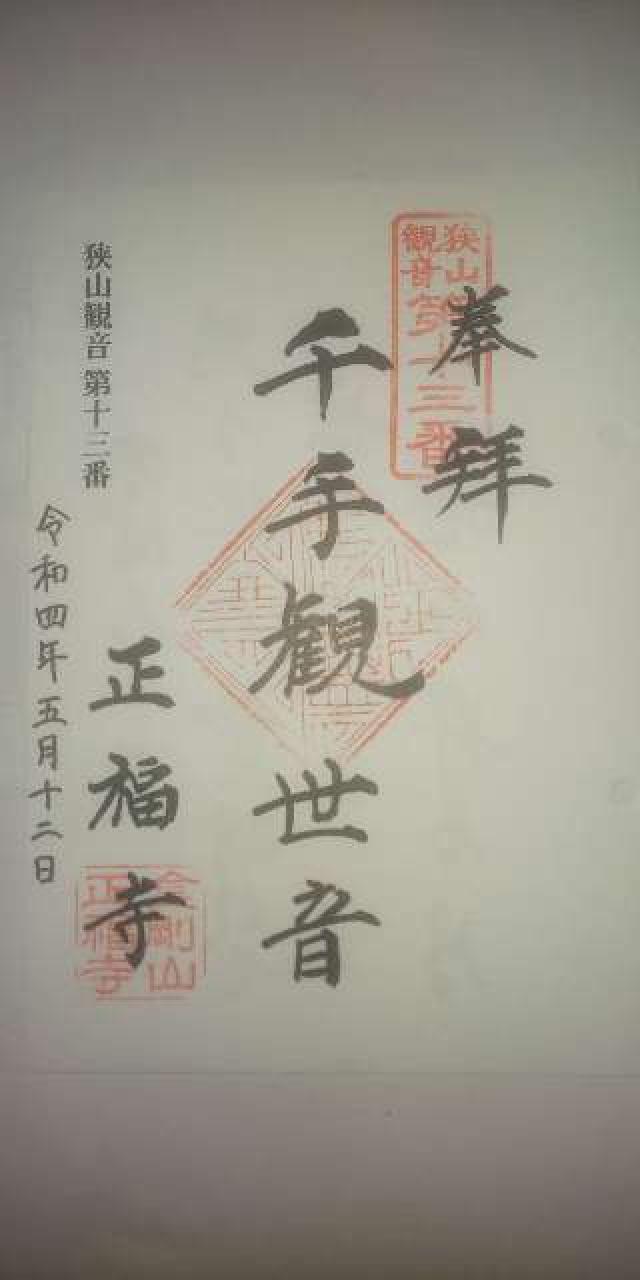 奉拝
狭山
観音第十三番
千手観世音
狭山観音 第十三番
正福寺
金剛山
正福寺
令和四年五月十二日